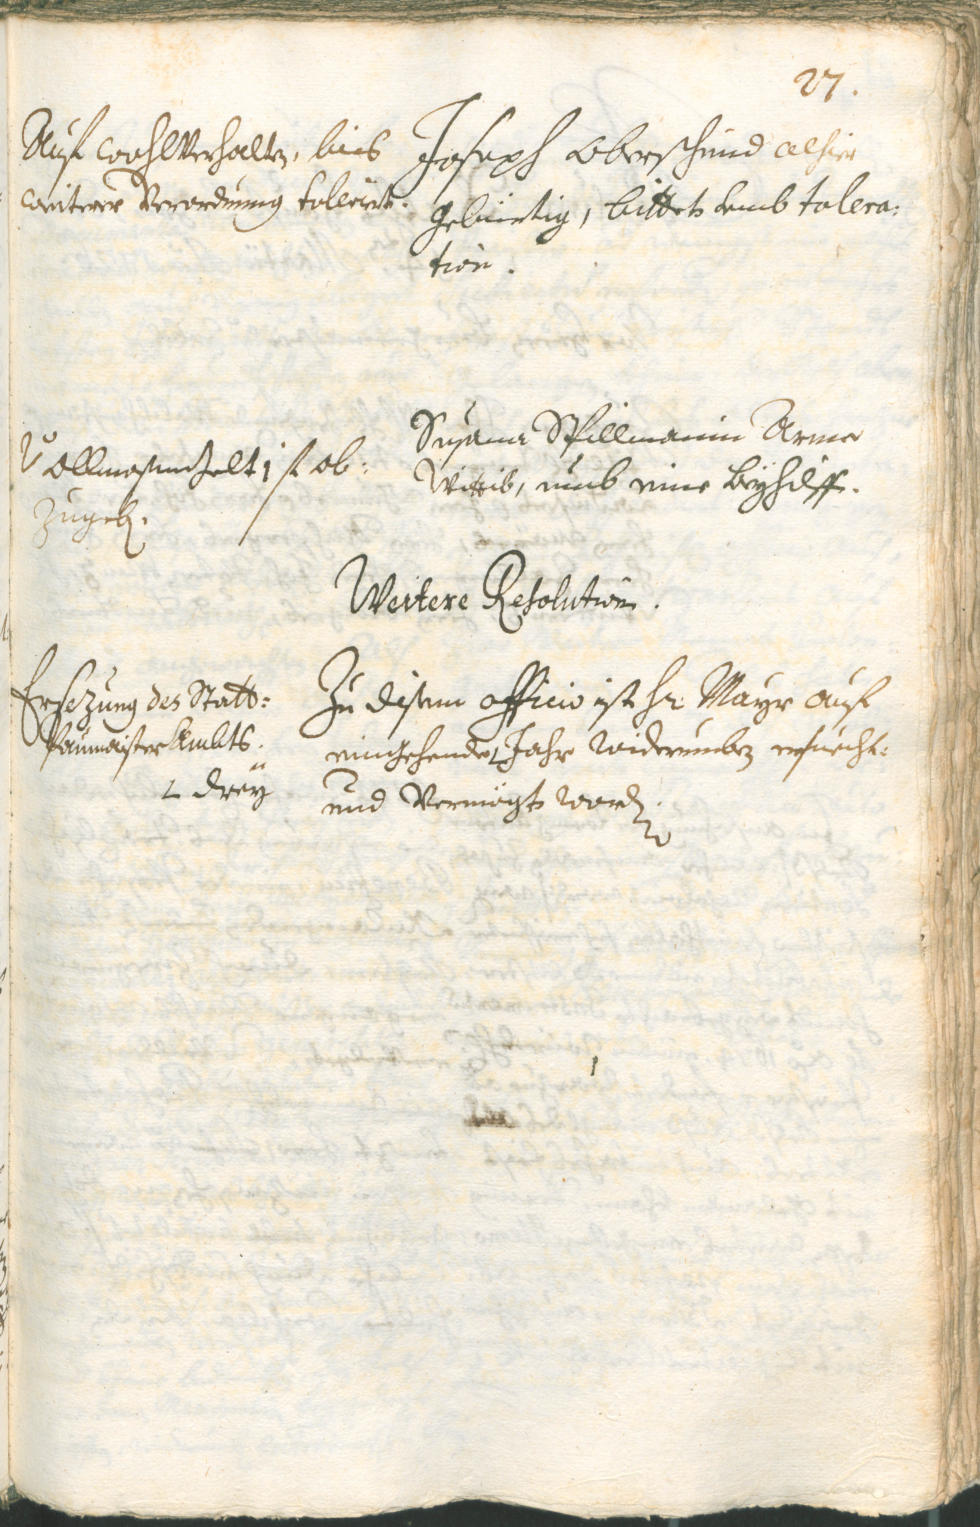 27.
Auf wohlverhalten, bis
weiterer Verordnung tolleriert.
Joseph Oberschmid alhier
gebürtig, bittet umb tolera:
tion.
Vollmasengelt 1 f ob:
zugeb.
Susana Spillmanin Arme
Wittib, umb eine Beyhilff.
Weitere Resolution.
Ersezung des Statt-
Paumaister Ambts.
Zu disem officio ist hr Mayr auf
eingehende Jahr widerumben ersuecht
und Vermögt worden.
L drey